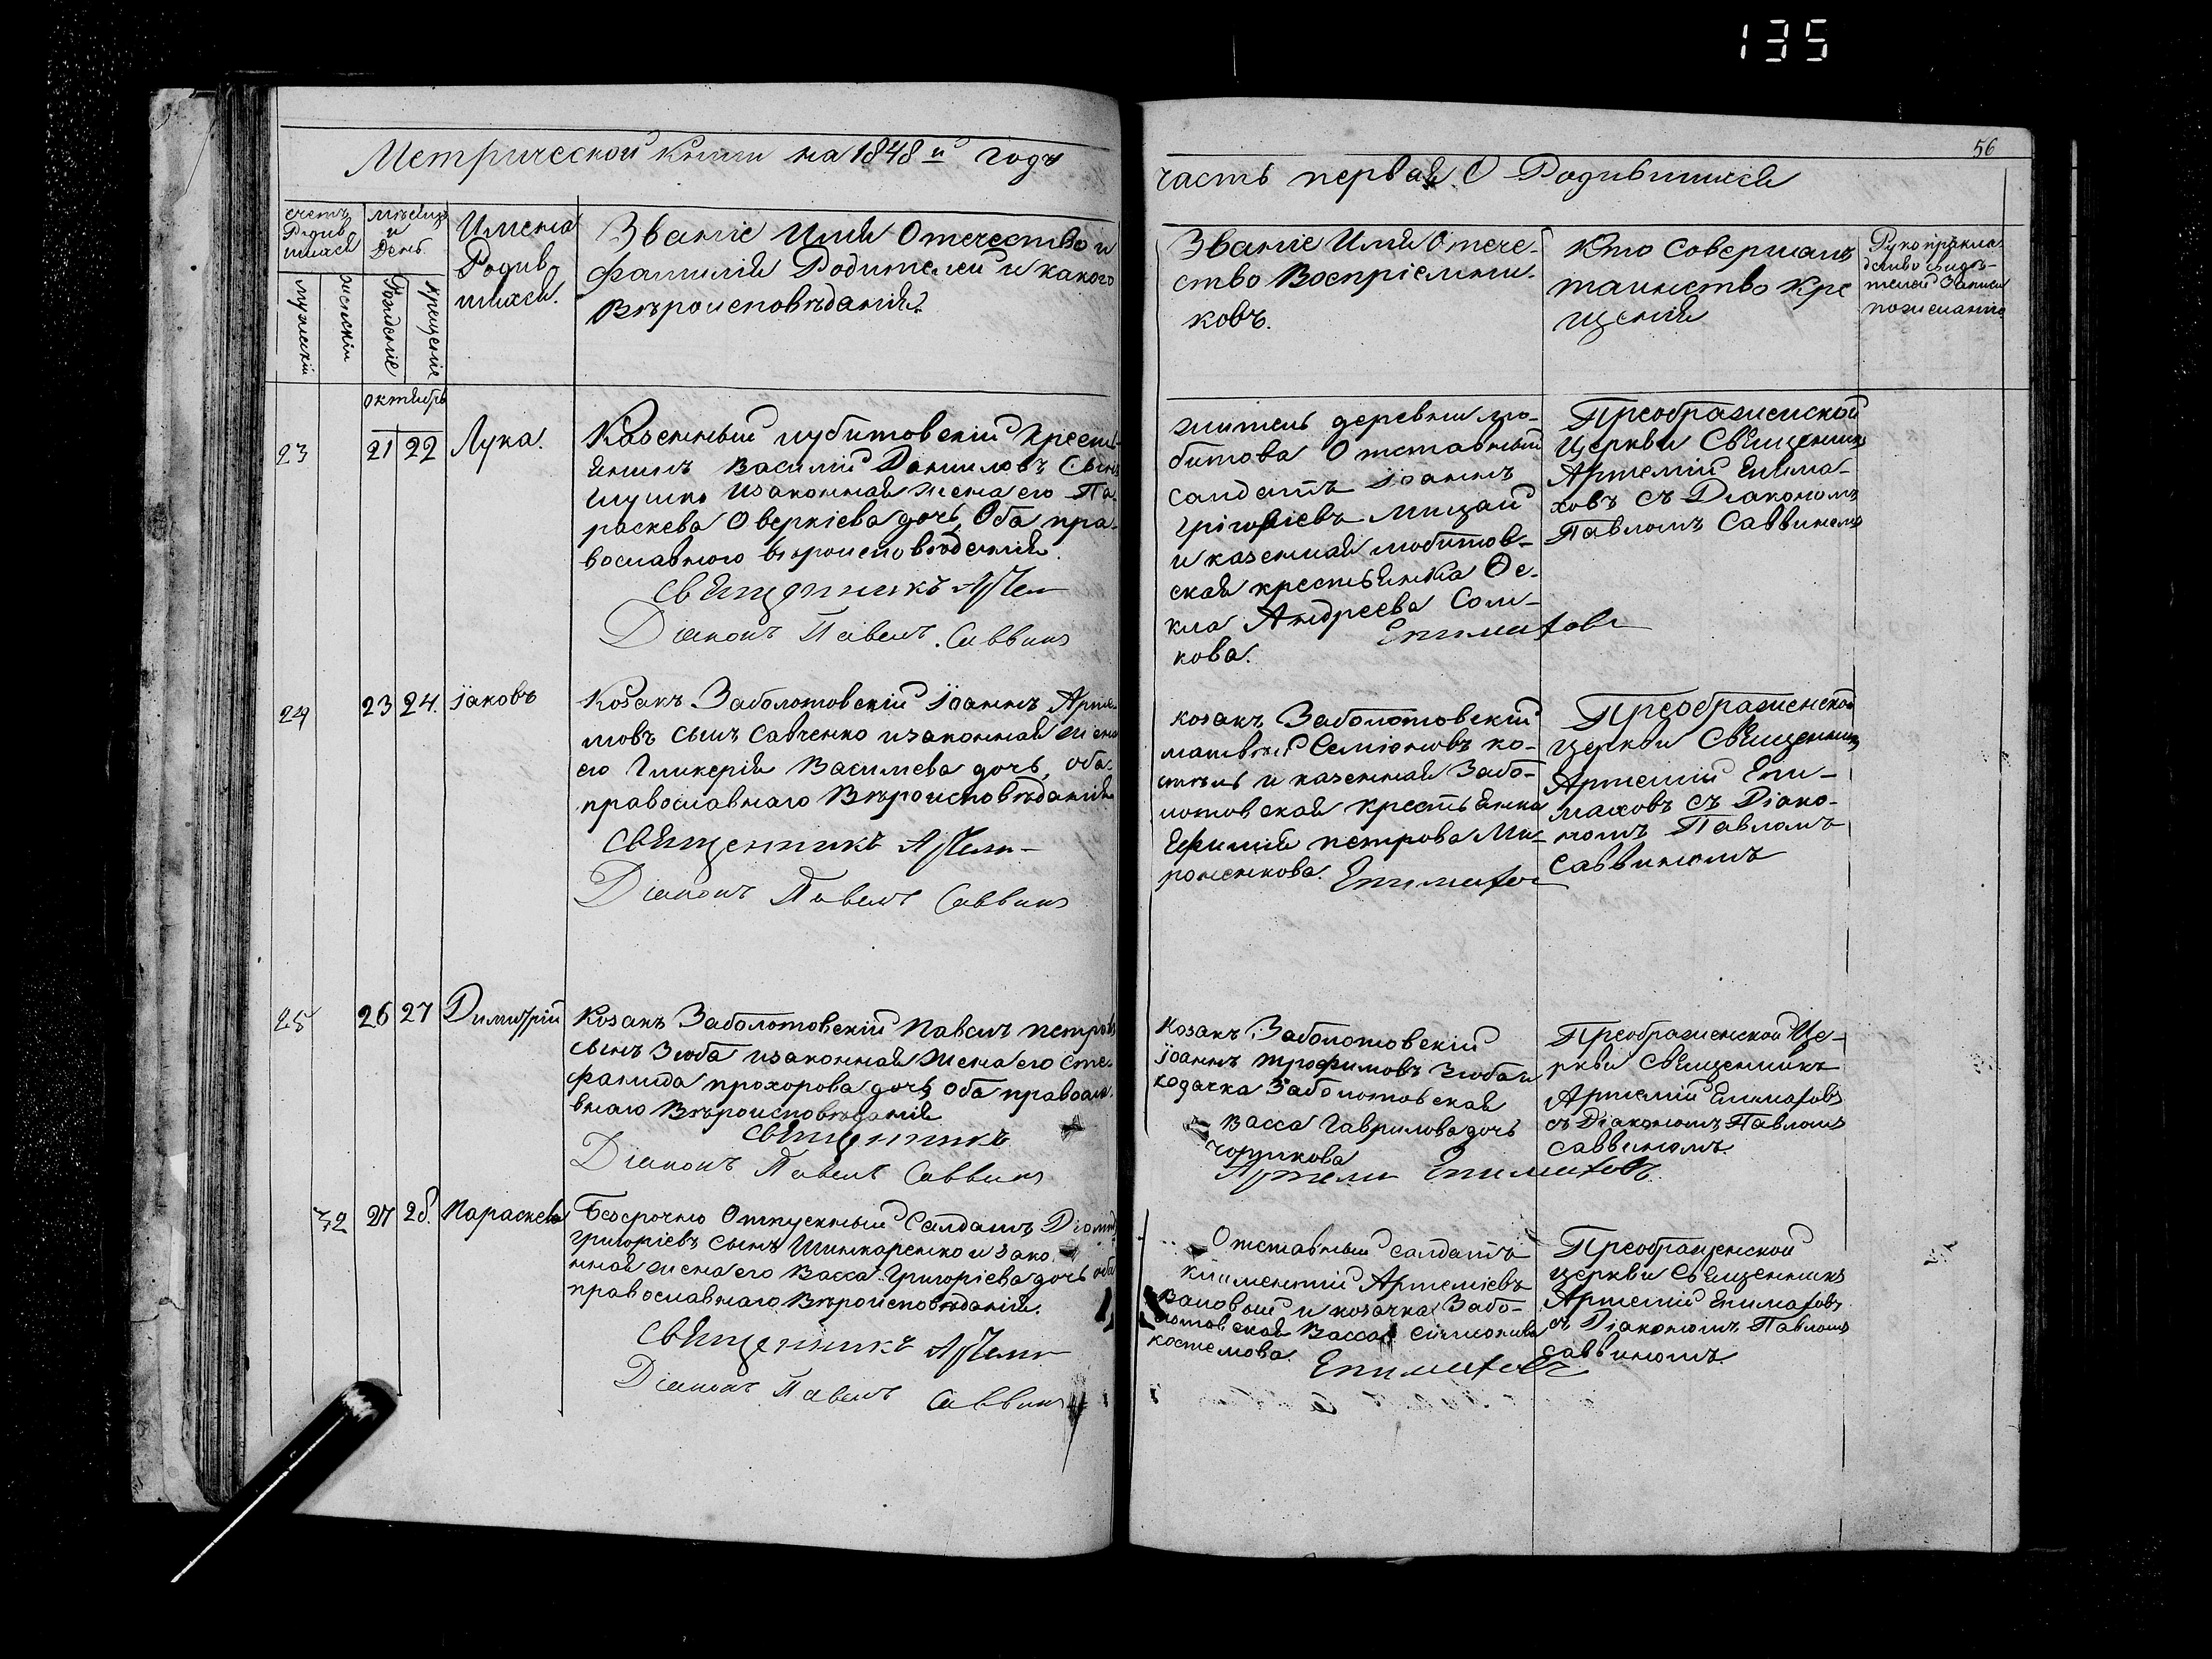 135
56
Метрической книги на 1848й годъ
часть первая О Родившихся
счетъ
Родив
шихся
мужескій
женскій
мѣсяцъ
и
День
Рожденіе
крещеніе
Имена
Родив
шихся.
Званіе Имя Отечество и
фамилія Родителей и какого
Вѣроисповѣданія
Званіе Имя Отече-
ство Воспріемни-
ковъ.
Кто совершалъ
таинство Кре
щенія
Рукоприкла-
дство свидѣ-
телей Записи
по желанію
октябрь
23
21 22
Лука.
Казенный любитовскій крестья
янинъ Василій Даниловъ Сынъ
и законная жена его Па-
раскева Оверкіева дочь, Оба пра-
вославного вѣроисповѣденія.
Священникъ Артем
Діаконъ Павелъ Саввинъ
житель деревни лю-
битова Отставный
салдатъ Іоаннъ
Григоріевъ Мицай
и казенная любитов-
ская крестьянка Ѳе-
кла Андреева Сом-
кова.
Епимахов
Преображенской
Церкви Священникъ
Артемій Епима-
ховъ съ Діакономъ
Павломъ Саввиномъ
24
23 24.
Іаковъ
Козакъ Заболотовскій Іоаннъ Арте
мовъ сынъ Савченко и законная жена
его Гликерія Василева дочь, оба
православнаго Вѣроисповѣданія
Священникъ Артеми
Діаконъ Павелъ Саввинъ
козакъ Заболотовскій
матвѣй Семіоновъ ко-
и казенная Забо-
лотовская крестьянка
Ефимія петрова Ми-
роненкова.
Епимахов
Преображенской
церкви Священникъ
Артемій Епи-
маховъ съ Діако-
номъ Павломъ
Саввиномъ
25
26 27
Димитрій
Козакъ Заболотовскій Павелъ петровъ
сынъ Зюба и законная жена его Сте-
фанида прохорова дочь, Оба правосла-
внаго Вѣроисповѣданія
Священникъ
Діаконъ Павелъ Саввинъ
Козакъ Заболотовскій
Іоаннъ трофимовъ Зюба и
козачка Заболотовская
Васса Гаврилова дочь
Артеми Епимаховъ
Преображенской Це-
ркви Священникъ
Артемій Епимаховъ
съ Діакономъ Павломъ
Саввиномъ
32
27 28.
Параскева
Безсрочно Отпускный Салдатъ Діомид
григоріевъ сынъ Шинкаренко и зако
нная жена его Васса Григоріева дочь оба
православнаго Вѣроисповѣданія.
Священникъ Артеми
Діаконъ Павелъ Саввинъ
Отставный салдатъ
климентій Артеміевъ
Валовый и козачка Забо-
лотовская Васса Симионова
костемова.
Епимаховъ
Преображенской
церкви Священникъ
Артемій Епимаховъ
съ Діакономъ Павломъ
Саввиномъ